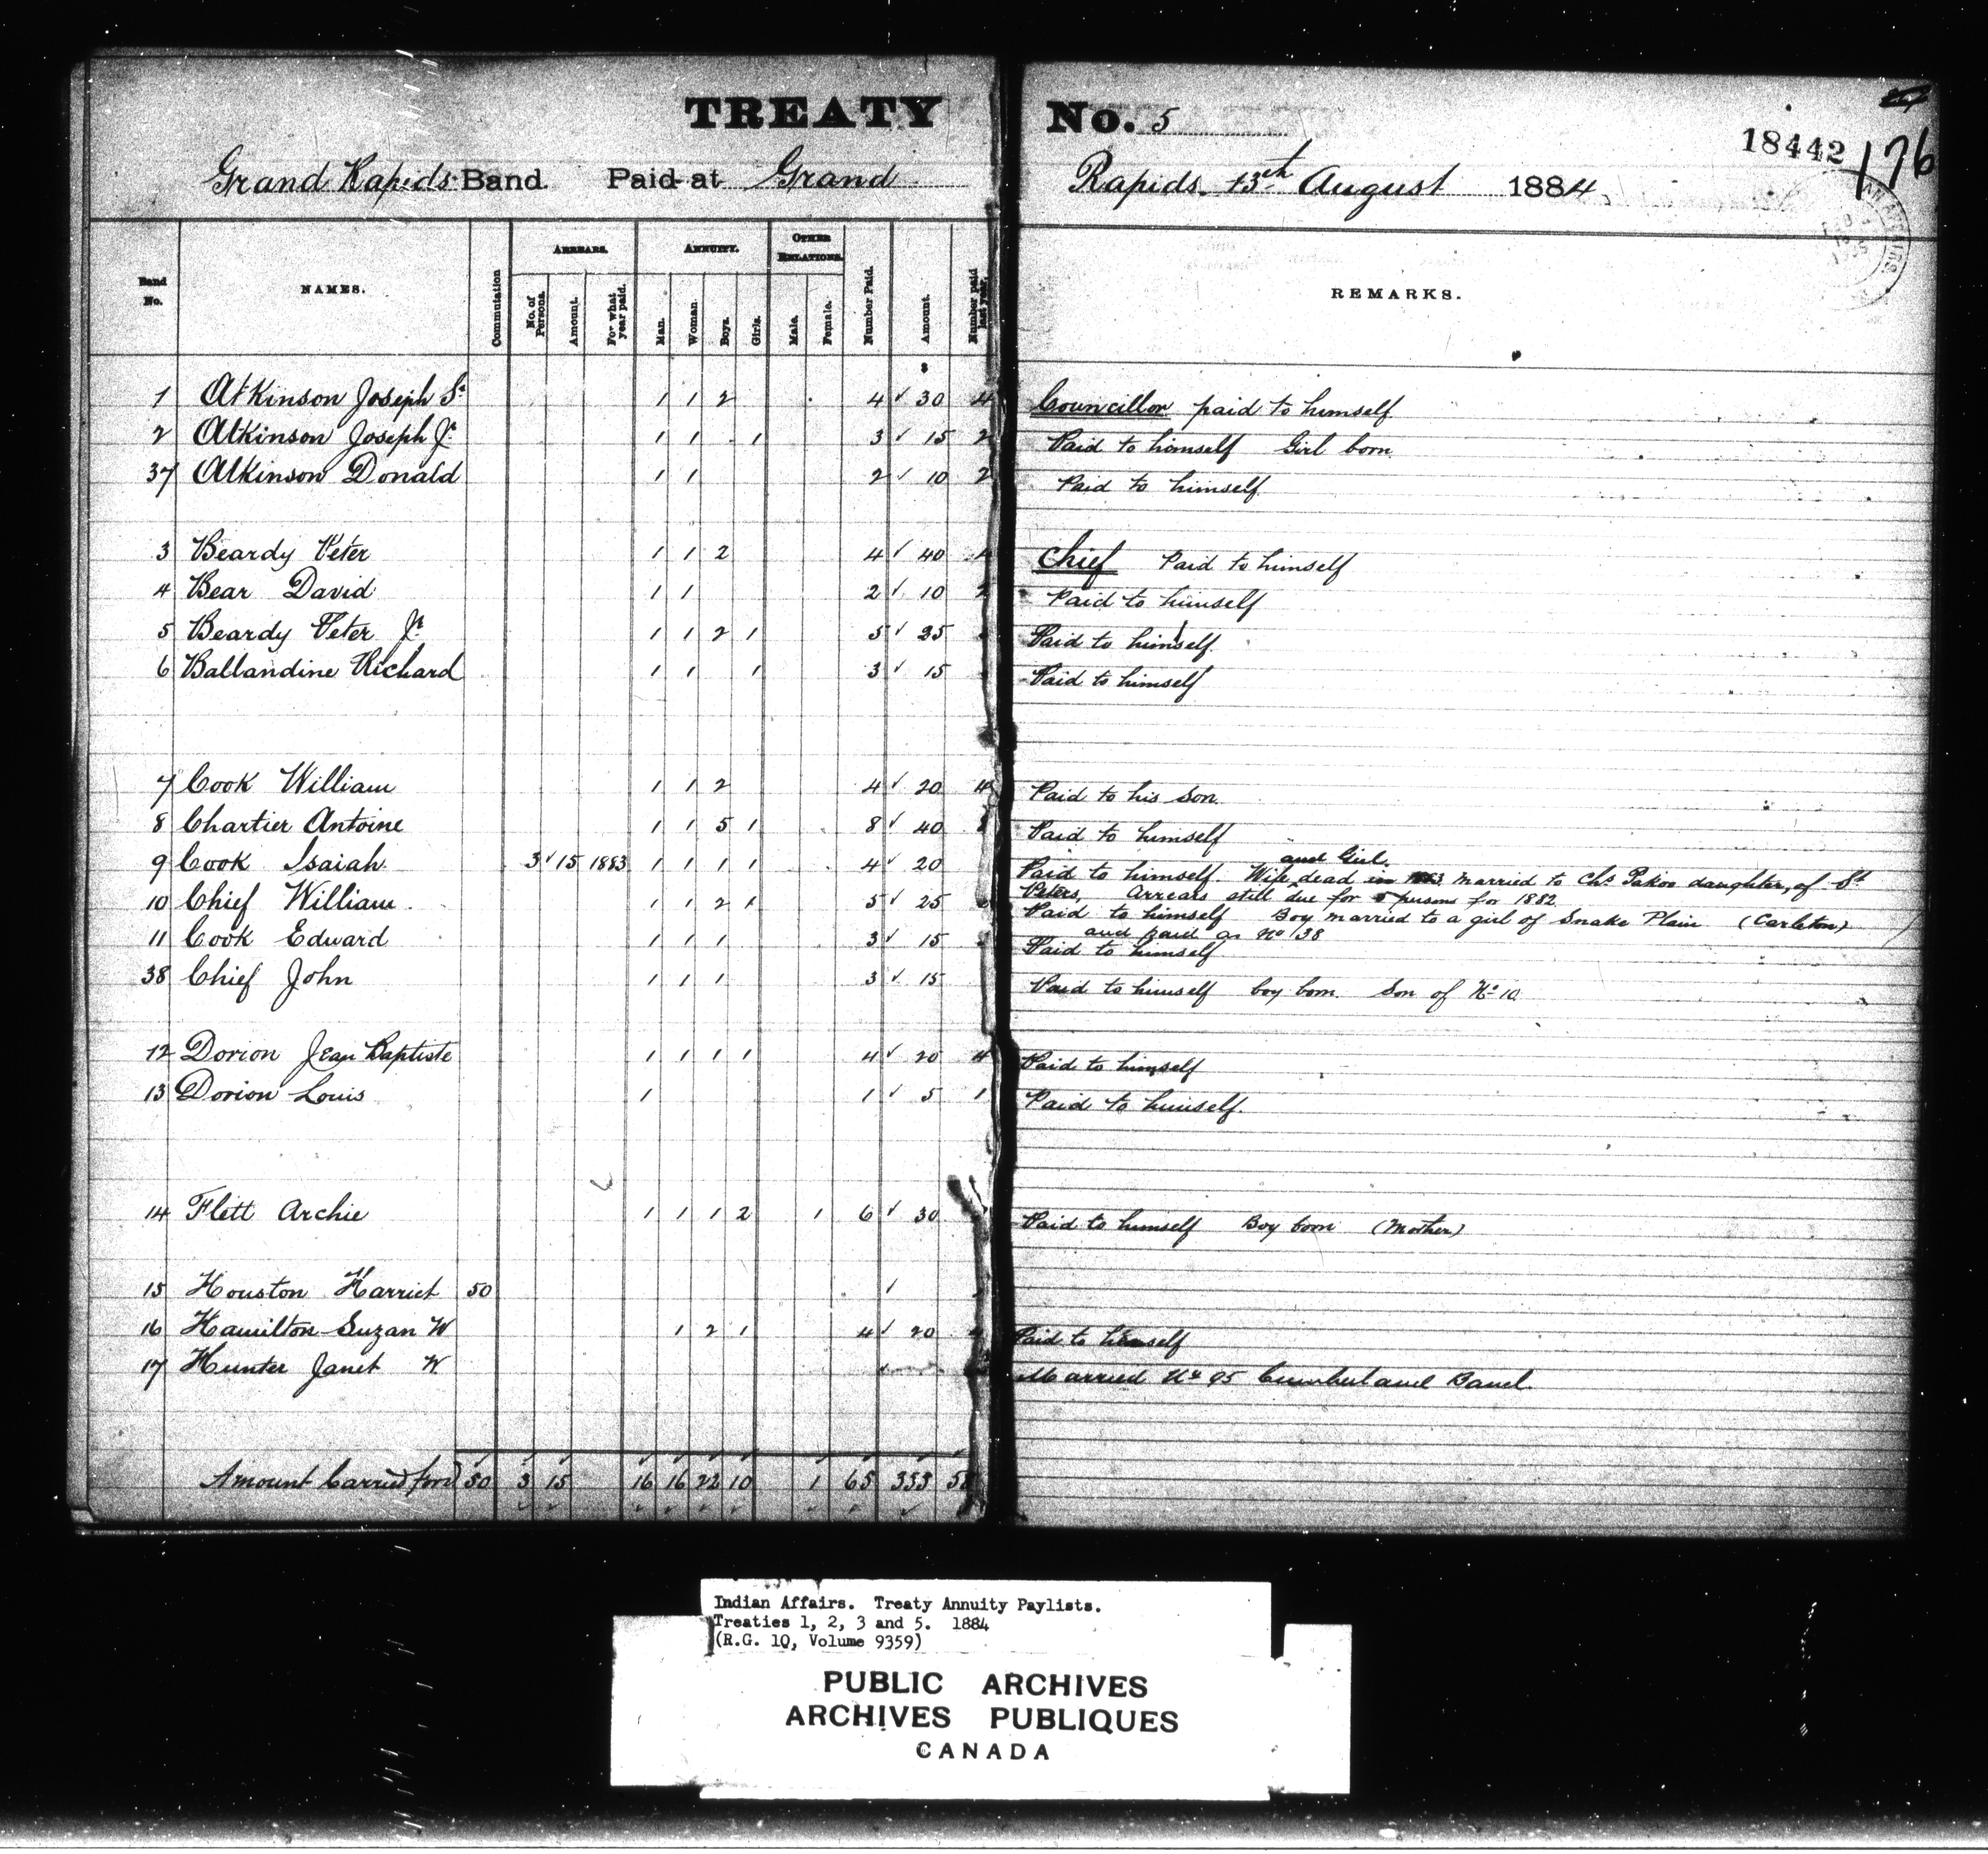 TREATY No. 5
18442 176
Grand Rapids Band. Paid at Grand Rapids 13th August 1884
Band No. NAMES. Commutation ARREARS. No. of Persons. Amount. For what year paid. ANNUITY. Man. Woman Boys. Girls. OTHER RELATIONS. Male. Female. Number Paid. Amount. Number paid last year. REMARKS.
1 Atkinson Joseph Sr 1 1 2 4 30 4 Councillor paid to himself
2 Atkinson Joseph Jr 1 1 1 3 15 2 Paid to himself Girl born
37 Atkinson Donald 1 1 2 10 2 Paid to himself
3 Beardy Peter 1 1 2 4 40 4 Chief Paid to himself
4 Bear David 1 1 2 10 2 Paid to himself
5 Beardy Peter Jr 1 1 2 1 5 25 Paid to himself
6 Ballandine Richard 1 1 1 3 15 Paid to himself
7 Cook William 1 1 2 4 20 4 Paid to his Son
8 Chartier Antoine 1 1 5 1 8 40 Paid to himself
9 Cook Isaiah 3 15 1883 1 1 1 1 4 20 Paid to himself Wife and Girl dead in 1883 married to Chs Pakoo daughter, of St
Peters, Arrears still due for 5 persons for 1882
10 Chief William 1 1 2 1 5 25 Paid to himself Boy married to a girl of Snake Plain (Carleton)
and paid as No 38
11 Cook Edward 1 1 1 3 15 Paid to himself
38 Chief John 1 1 1 3 15 Paid to himself boy born Son of No 10
12 Dorion Jean Baptiste 1 1 1 1 4 20 4 Paid to himself
13 Dorion Louis 1 1 5 1 Paid to himself.
14 Flett Archie 1 1 1 2 1 6 30 Paid to himself Boy born (Mother)
15 Houston Harriet 50
16 Hamilton Suzan W 1 2 1 4 20 Paid to himself
17 Hunter Janet W. Married No 95 Cumberland Band
Amount Carried ford 50 3 15 16 16 22 10 1 65 333
Indian Affairs. Treaty Annuity Paylists.
Treaties 1, 2, 3 and 5. 1884
(R.G. 10, Volume 9359)
PUBLIC ARCHIVES
ARCHIVES PUBLIQUES
CANADA